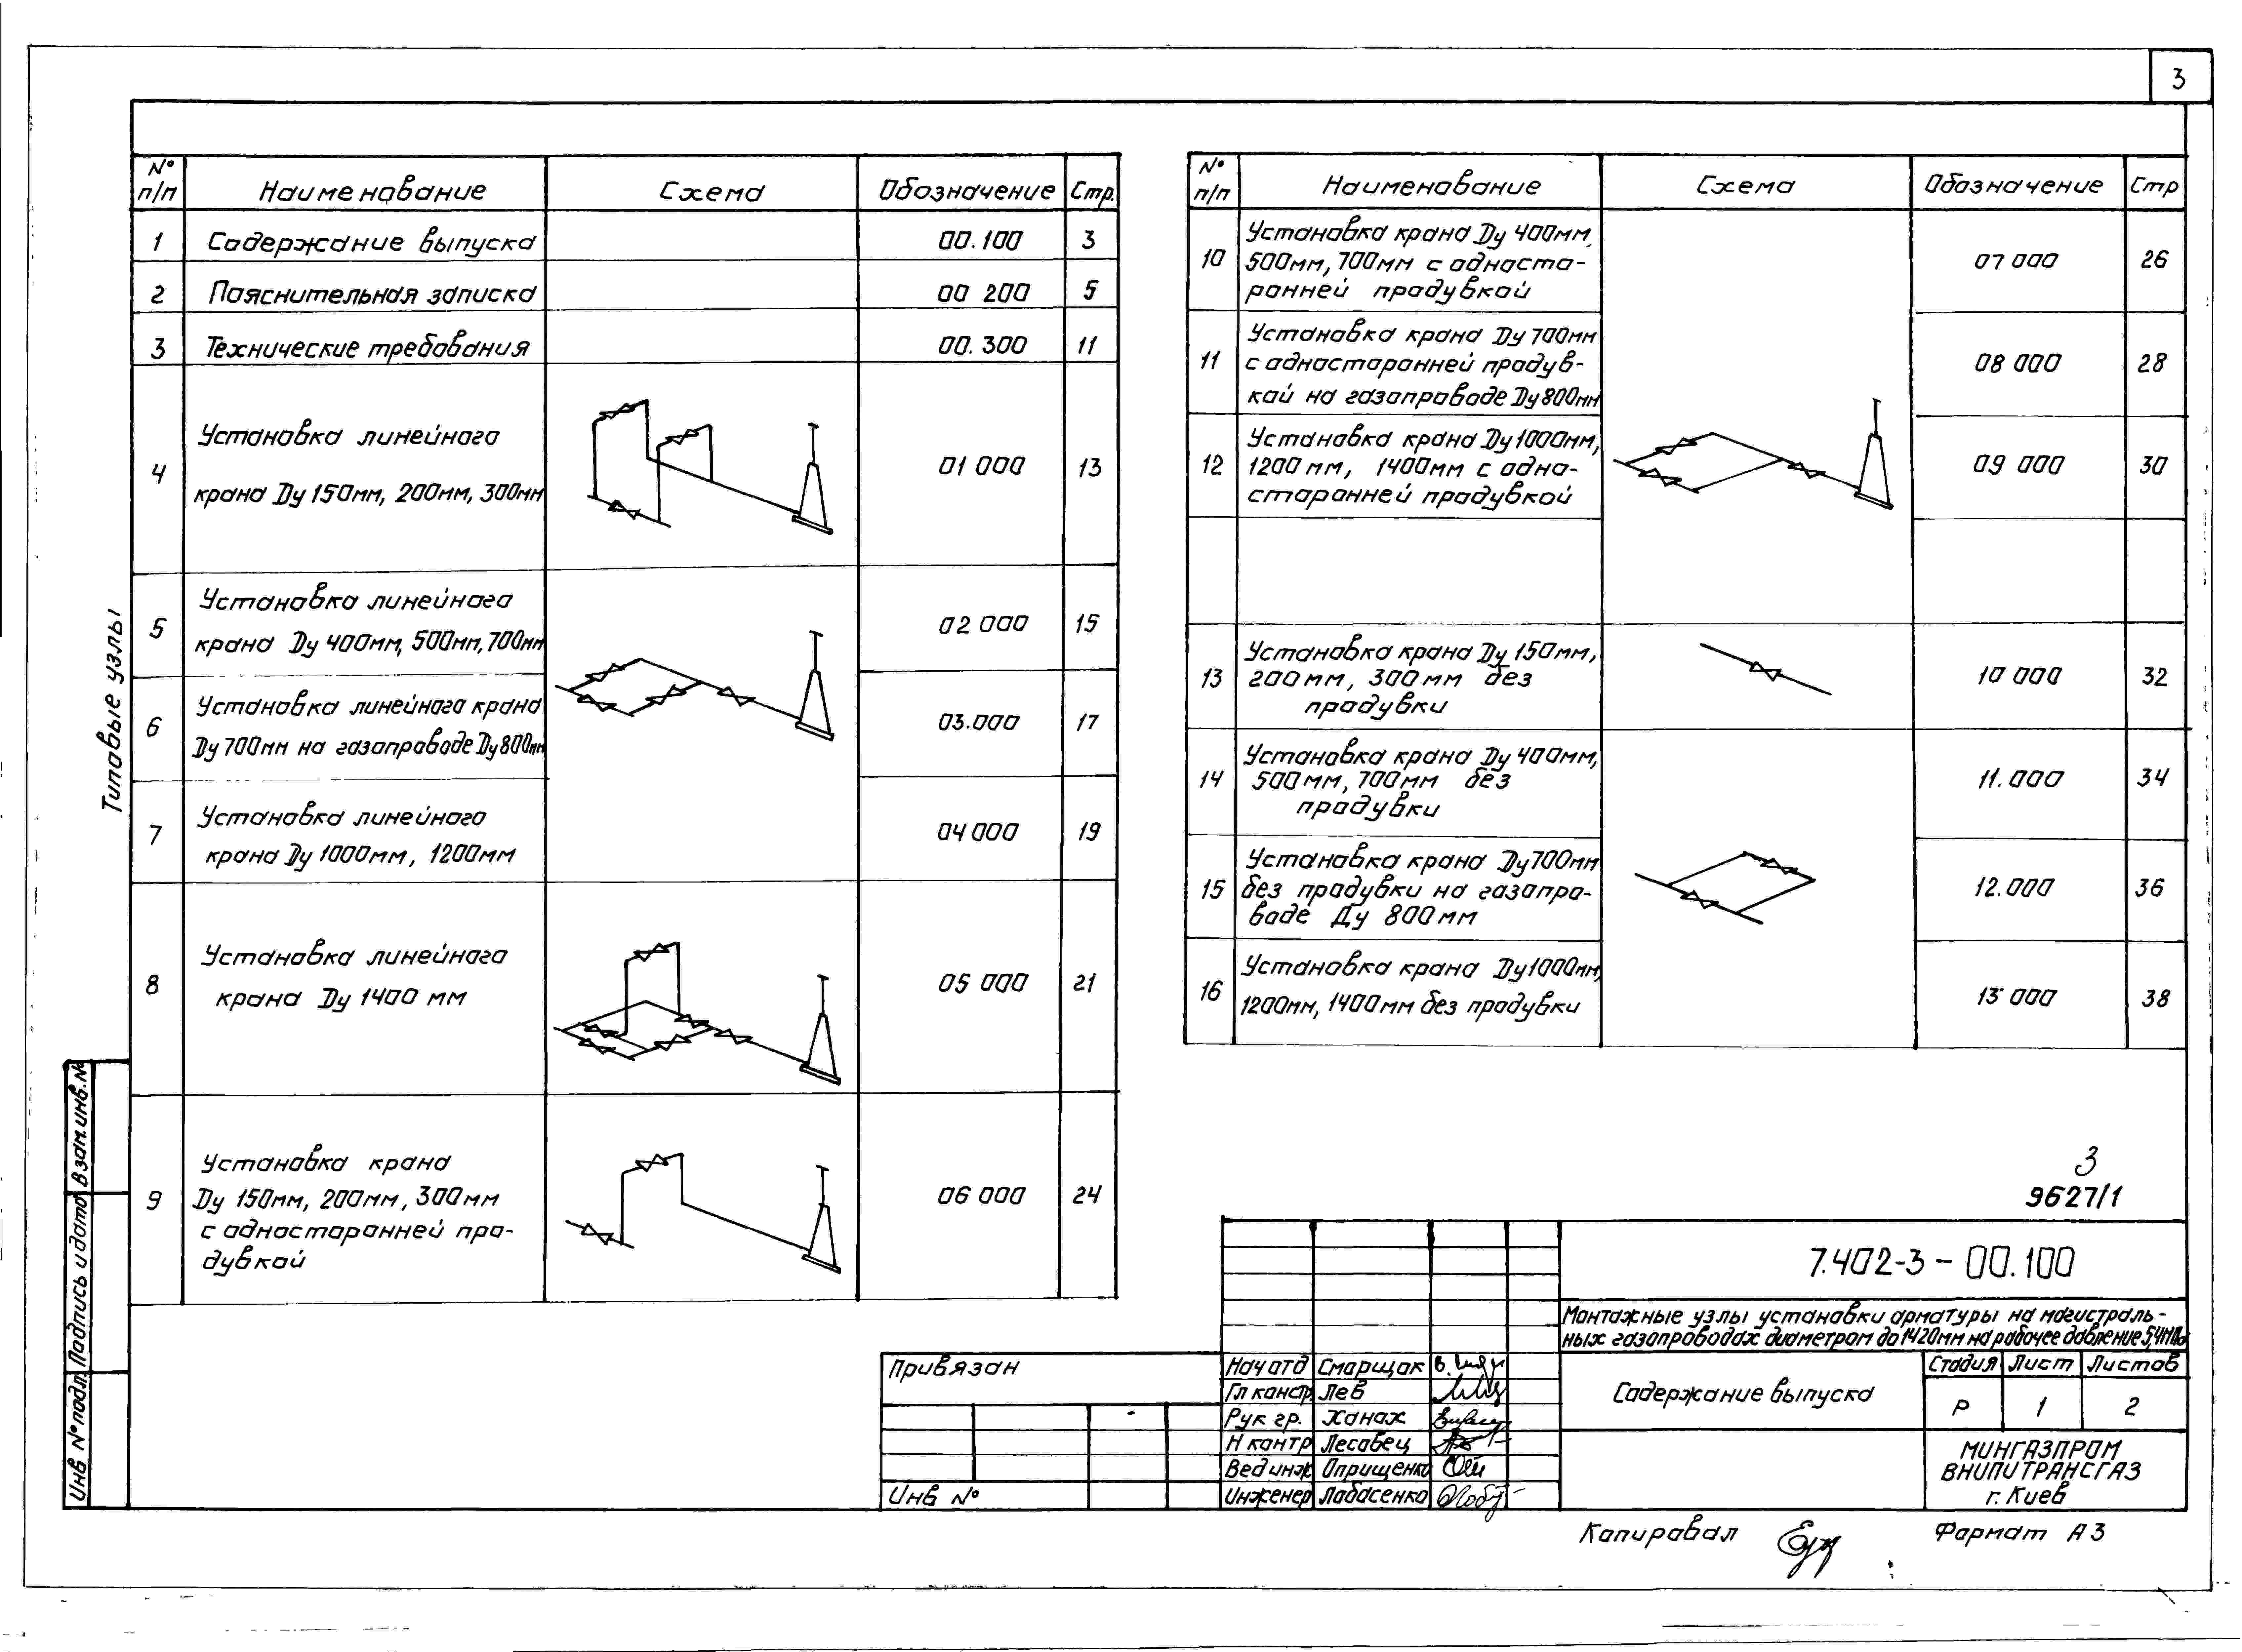 3
№ п/п Наименование Схема Обозначение Стр.
1 Содержание выпуска 00.100 3
2 Пояснительная записка 00 200 5
3 Технические требования 00.300 11
4 Установка линейного
крана Ду 150мм, 200мм, 300мм 01 000 13
5 Установка линейного
крана Ду 400мм, 500мм, 700мм 02 000 15
6 Установка линейного крана
Ду 700мм на газопроводе Ду 800мм 03.000 17
7 Установка линейного
крана Ду 1000мм, 1200мм 04 000 19
8 Установка линейного
крана Ду 1400 мм 05 000 21
9 Установка крана
Ду 150мм, 200мм, 300мм
с односторонней про-
дувкой 06 000 24
№ п/п Наименование Схема Обозначение Стр
10 Установка крана Ду 400мм,
500мм, 700мм с односто-
ронней продувкой 07 000 26
11 Установка крана Ду 700мм
с односторонней продув-
кой на газопроводе Ду 800мм 08 000 28
12 Установка крана Ду 1000мм,
1200 мм, 1400мм с одно-
сторонней продувкой 09 000 30
13 Установка крана Ду 150мм,
200мм, 300мм без
продувки 10 000 32
14 Установка крана Ду 400мм,
500мм, 700мм без
продувки 11.000 34
15 Установка крана Ду 700мм
без продувки на газопро-
воде Ду 800мм 12.000 36
16 Установка крана Ду 1000мм,
1200мм, 1400мм без продувки 13 000 38
Типовые узлы
Взам.инв.№
Подпись и дата
Инв № подл.
3
9627/1
7.402-3-00.100
Монтажные узлы установки арматуры на магистраль-
ных газопроводах диаметром до 1420мм на рабочее давление 5,4МПа
Содержание выпуска
Стадия Лист Листов
Р 1 2
МИНГАЗПРОМ
ВНИПИТРАНСГАЗ
г. Киев
Привязан
Инв №
Нач отд Смарщок
Гл констр. Лев
Рук гр. Ханах
Н контр Лесовец
Вед инж Оприщенко
Инженер Лобасенко
Копировал
Формат А3